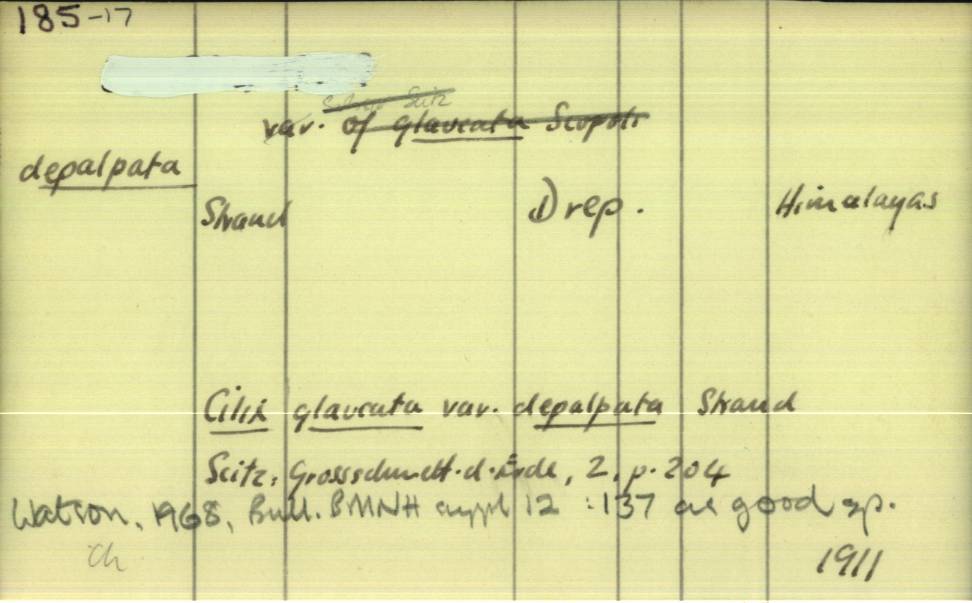 185-17
Seitz
var. of glaucata Scopoli
depalpata
Strand Drep. Himalayas
Cilix glaucata var. depalpata Strand
Seitz, Grossschmett. d. Erde, 2, p. 204
Watson, 1968, Bull. BMNH suppl 12 : 137 as good sp.
Ch
1911